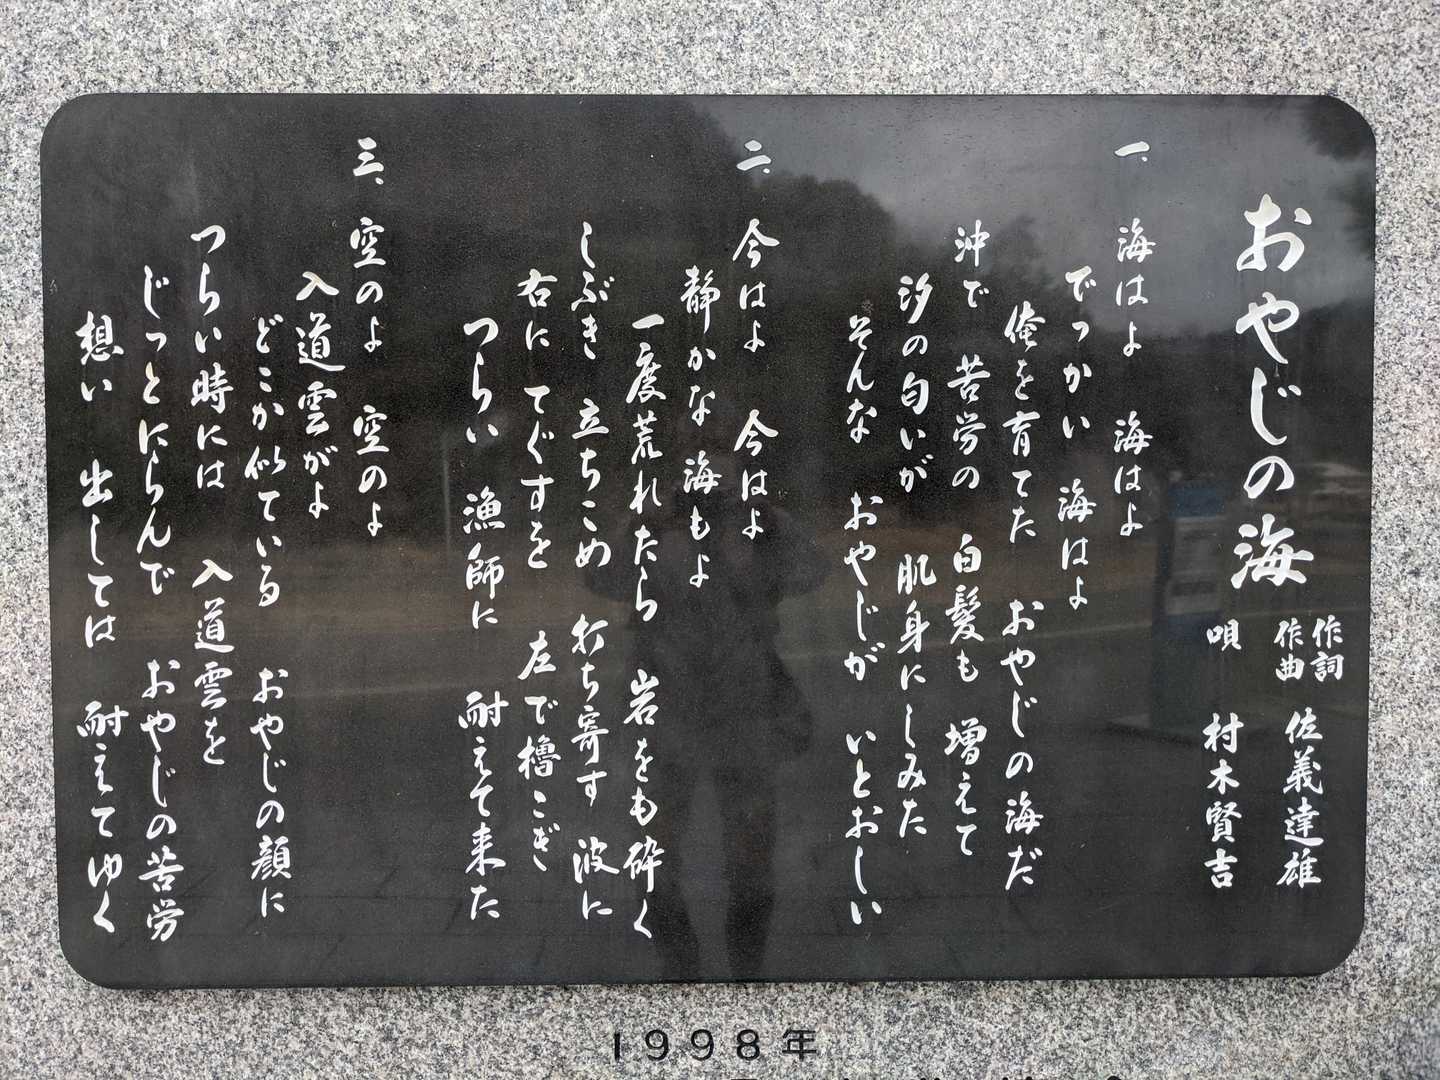 おやじの海
作詞
作曲 佐義達雄
唄 村木賢吉
一、海はよ 海はよ
でっかい 海はよ
俺を育てた おやじの海だ
沖で 苦労の 白髪も 増えて
汐の匂いが 肌身にしみた
そんな おやじが いとおしい
二、今はよ 今はよ
静かな 海もよ
一度荒れたら 岩をも砕く
しぶき 立ちこめ 打ち寄す 波に
右に てぐすを 左で櫓こぎ
つらい 漁師に 耐えて来た
三、空のよ 空のよ
入道雲がよ
どこか似ている おやじの顔に
つらい時には 入道雲を
じっとにらんで おやじの苦労
想い 出しては 耐えてゆく
1998年